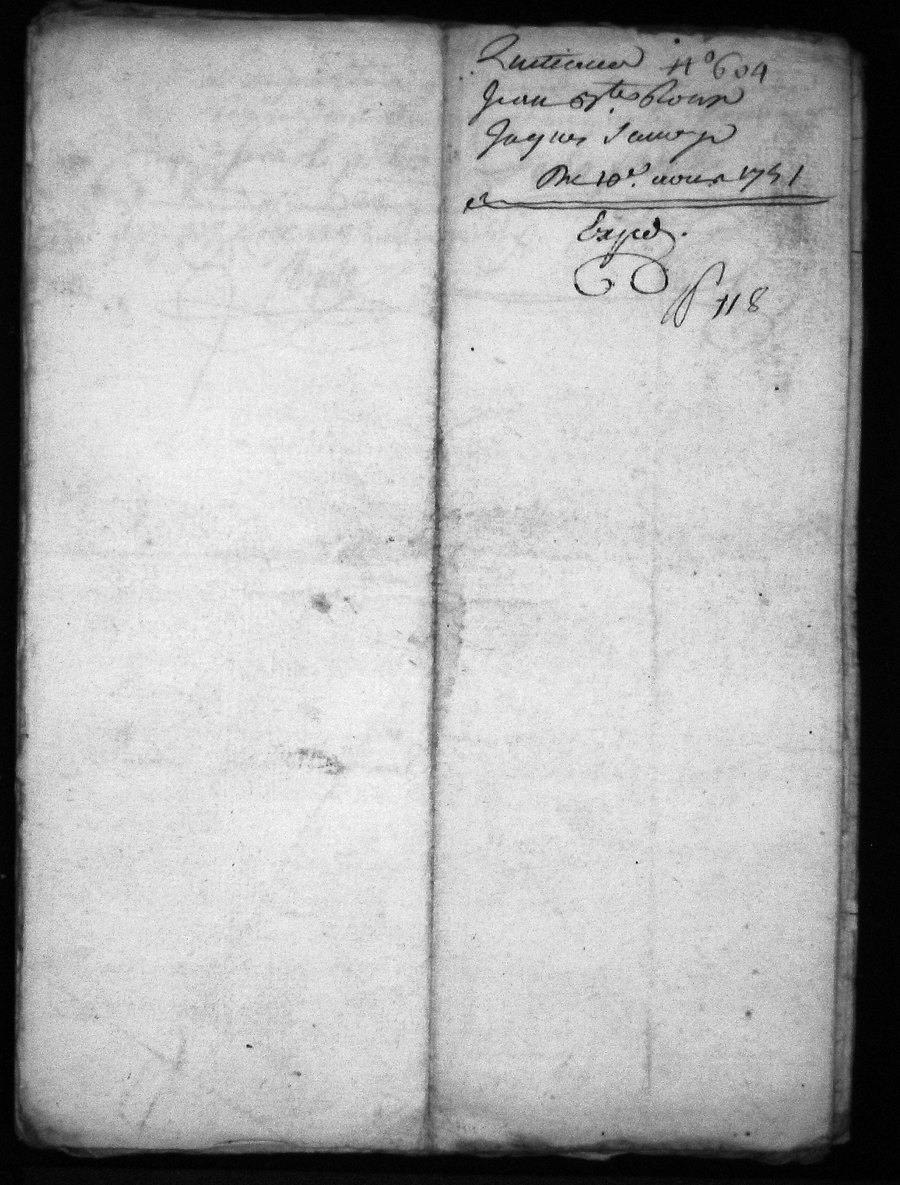 Quittance n° 604
Jean Bte Roux
Jaques Sauvage
Du 10e. aoust 1751
Expéd.
P 118